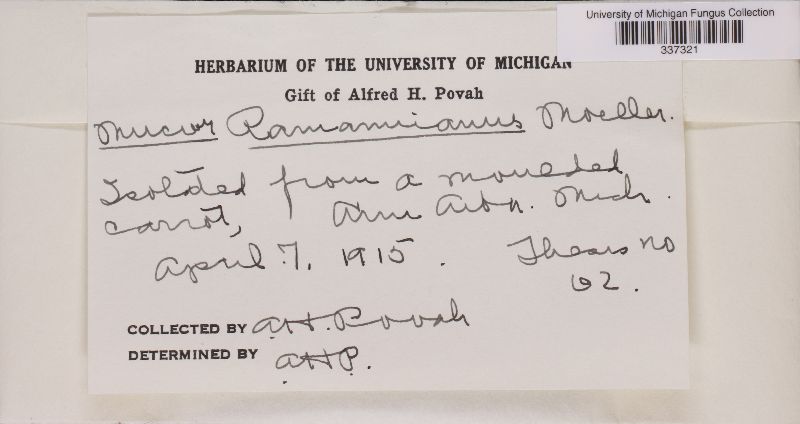 University of Michigan Fungus Collection
337321
HERBARIUM OF THE UNIVERSITY OF MICHIGAN
Gift of Alfred H. Povah
Mucor Ramannianus Moeller.
Isolated from a moulded
carrot, Ann Arbor. Mich.
April 7, 1915. Thesis no
62.
COLLECTED BY A.H. Povah
DETERMINED BY AHP.